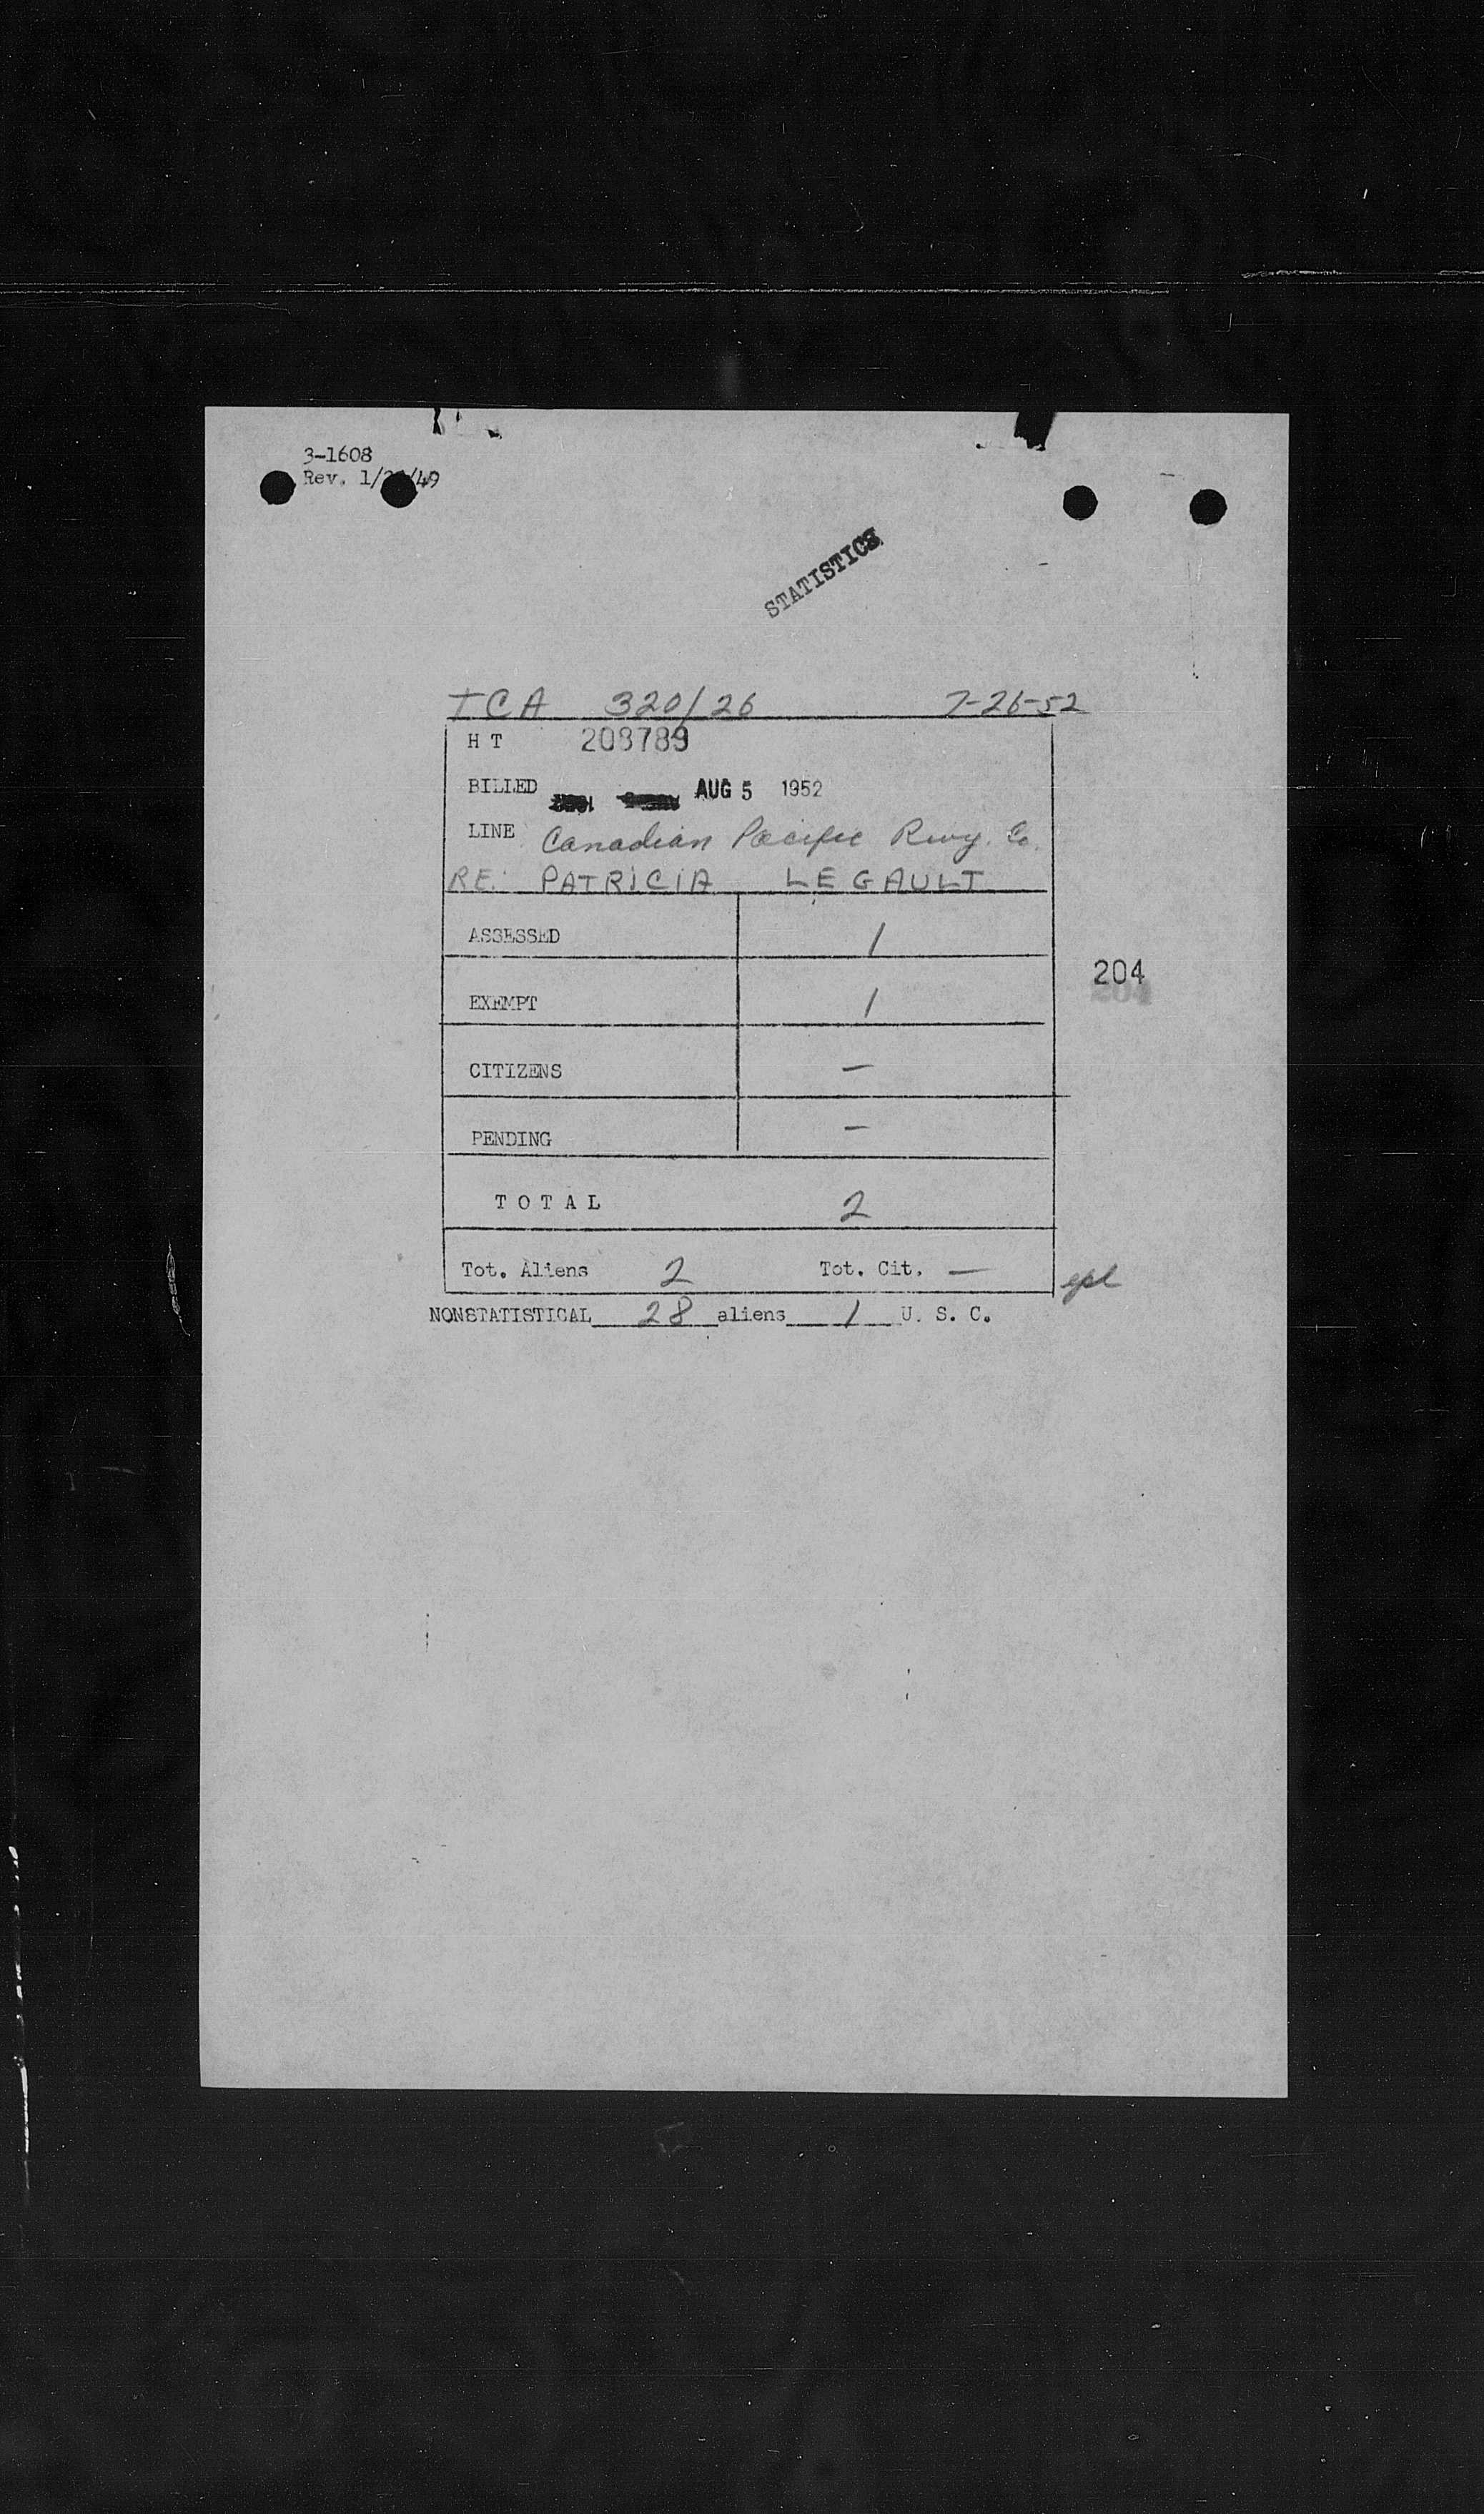 3-1608
Rev. 1/ /49
STATISTICS
TCA 320/26 7-26-52
H T 208789
BILLED AUG 5 1952
LINE Canadian Pacific Rwy. Co.
RE: PATRICIA LEGAULT
ASSESSED 1
204
EXEMPT 1
CITIZENS —
PENDING —
T O T A L 2
Tot. Aliens 2 Tot. Cit. —
NONSTATISTICAL 28 aliens 1 U. S. C.